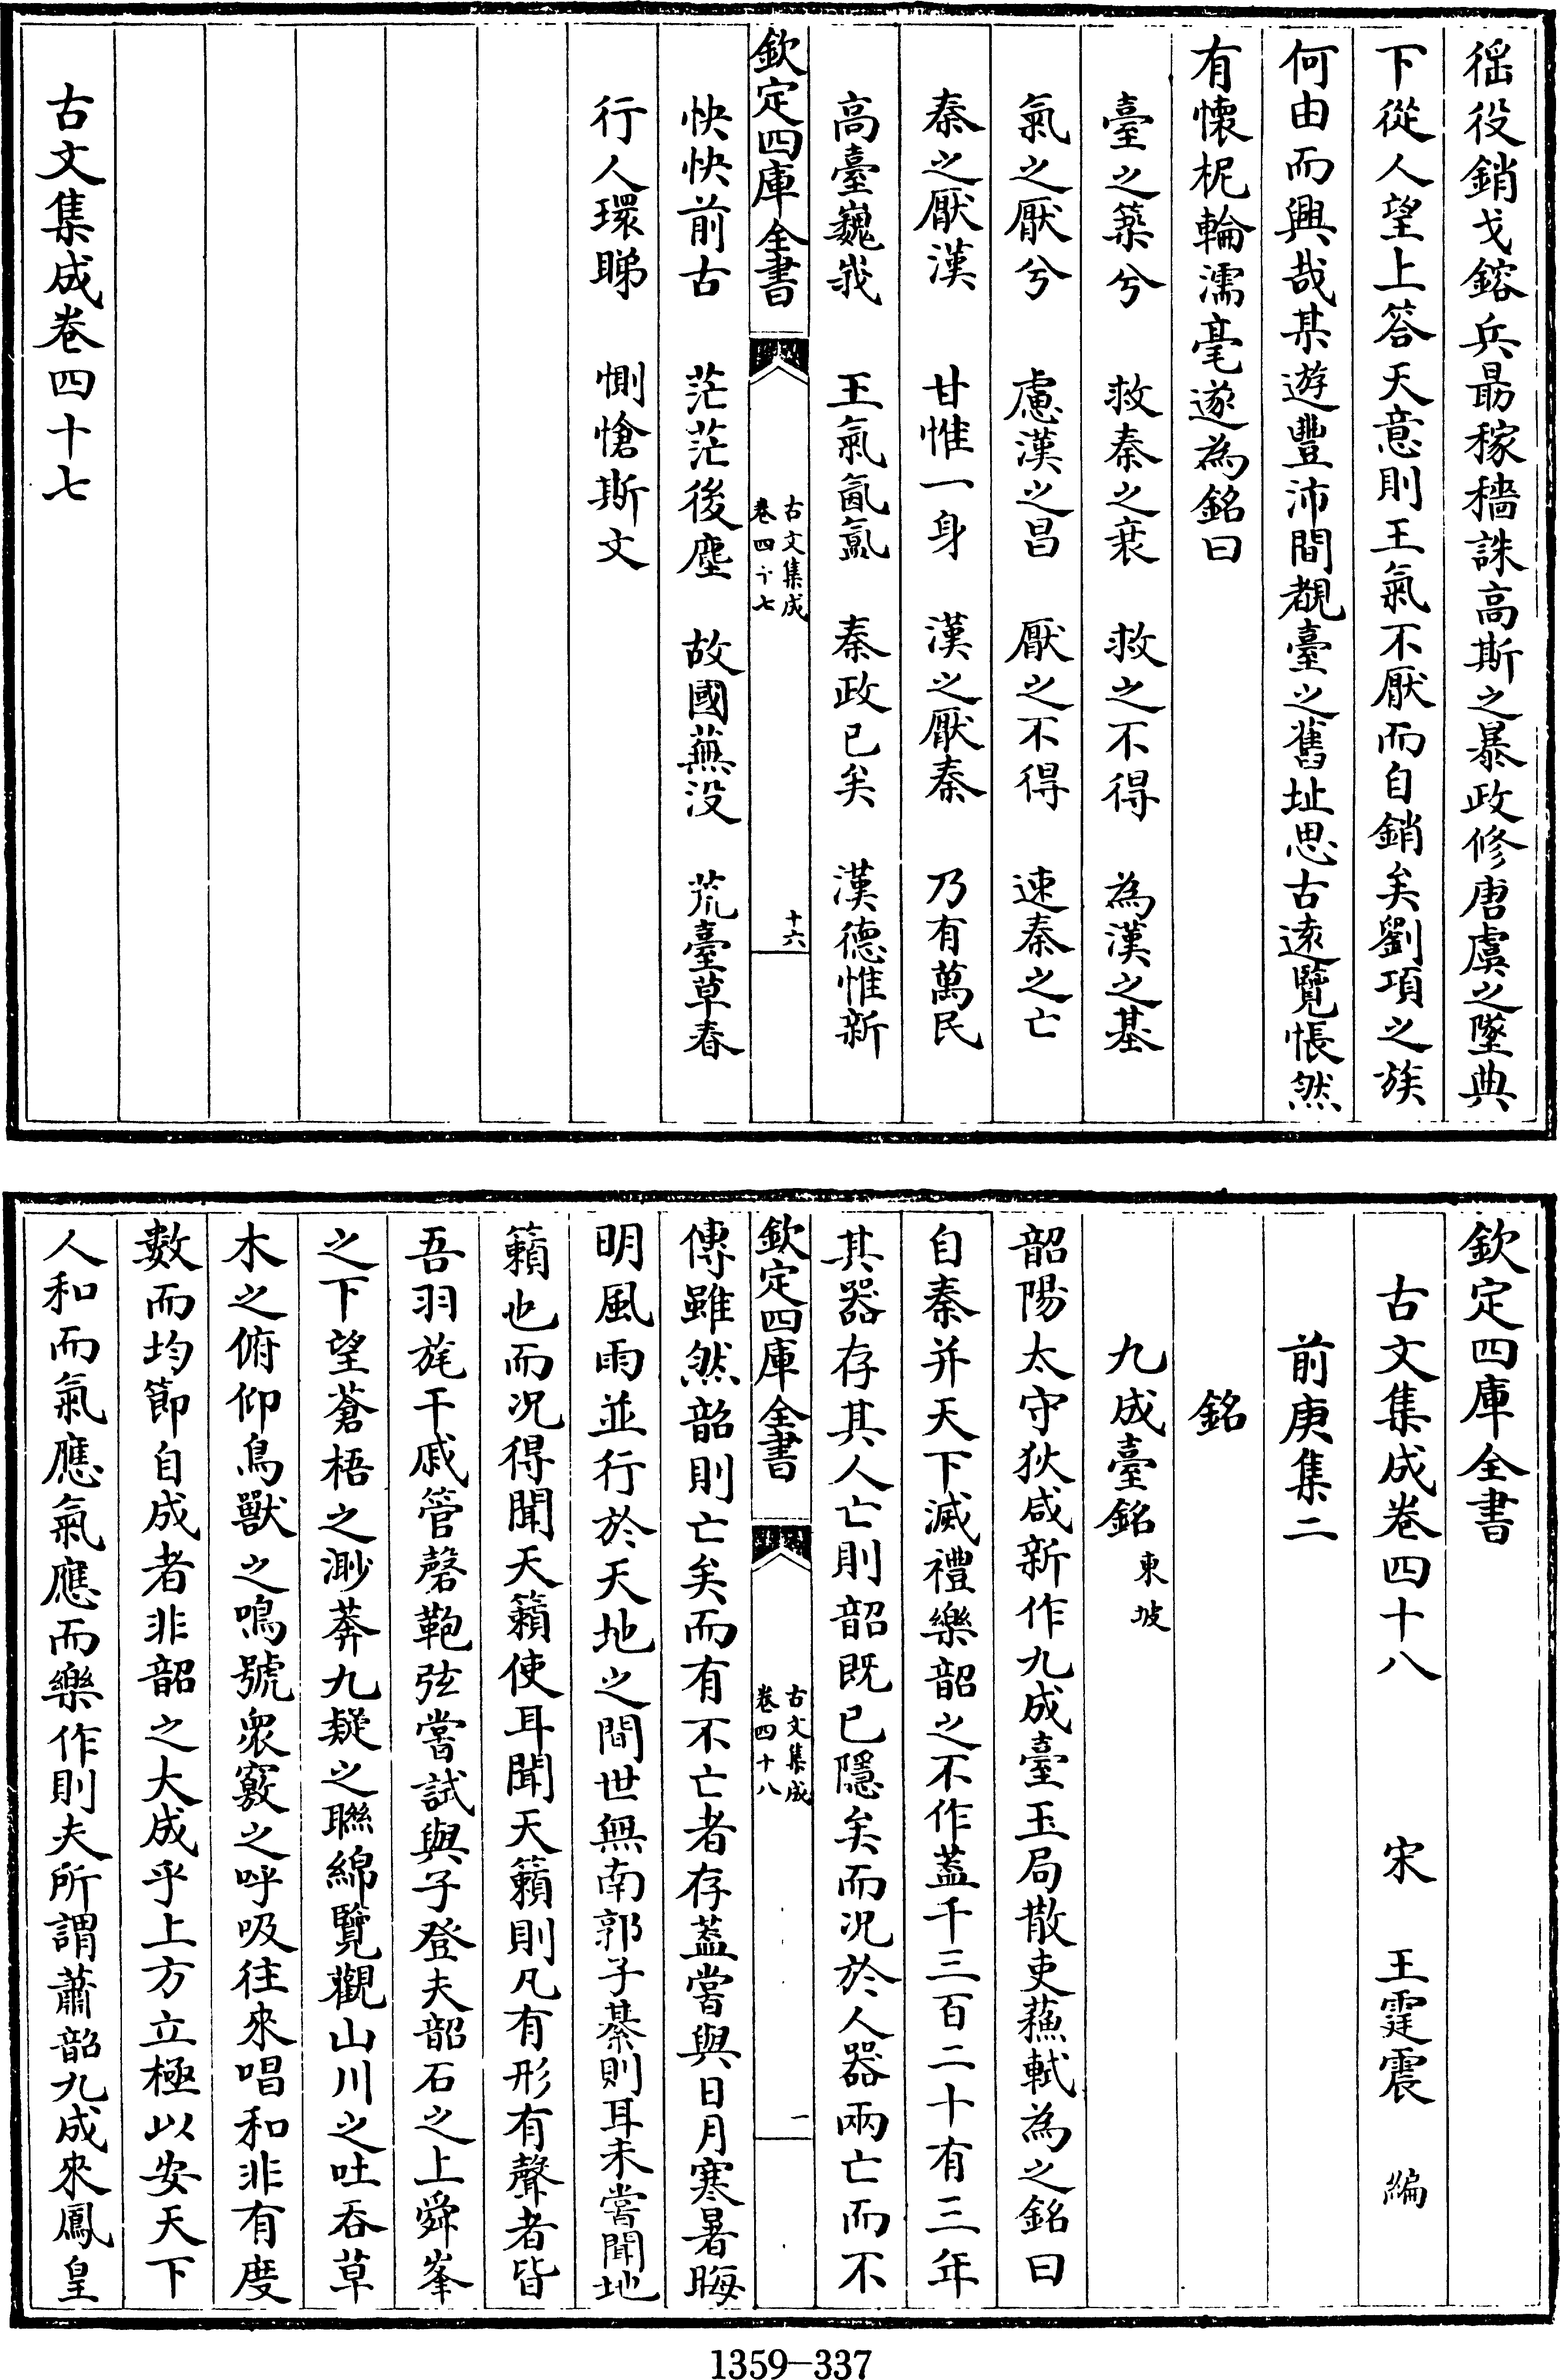 徭役銷戈鎔兵朂稼穡誅高斯之暴政修唐虞之墜典
下從人望上答天意則王氣不厭而自銷矣劉項之族
何由而興哉某遊豐沛間覩臺之舊址思古遠覽悵然
有懷柅輪濡毫遂為銘曰
臺之築兮　救秦之衰　救之不得　為漢之基
氣之厭兮　慮漢之昌　厭之不得　速秦之亡
秦之厭漢　甘惟一身　漢之厭秦　乃有萬民
高臺巍峩　王氣氤氳　秦政已矣　漢德惟新
欽定四庫全書　古文集成　卷四十七　十六
怏怏前古　茫茫後塵　故國蕪没　荒臺草春
行人環睇　惻愴斯文
古文集成卷四十七
欽定四庫全書
古文集成卷四十八　宋　王霆震　編
前庚集二
銘
九成臺銘　東坡
韶陽太守狄咸新作九成臺玉局散吏蘓軾為之銘曰
自秦并天下滅禮樂韶之不作蓋千三百二十有三年
其器存其人亡則韶既已隱矣而况於人器兩亡而不
欽定四庫全書　古文集成　卷四十八　一
傳雖然韶則亡矣而有不亡者存蓋嘗與日月寒暑晦
明風雨並行於天地之間世無南郭子綦則耳未嘗聞地
籟也而况得聞天籟使耳聞天籟則凡有形有聲者皆
吾羽旄干戚管磬匏弦嘗試與子登夫韶石之上舜峯
之下望蒼梧之渺莽九疑之聯綿覽觀山川之吐吞草
木之俯仰鳥獸之鳴號衆竅之呼吸往來唱和非有度
數而均節自成者非韶之大成乎上方立極以安天下
人和而氣應氣應而樂作則夫所謂蕭韶九成來鳳皇
1359-337